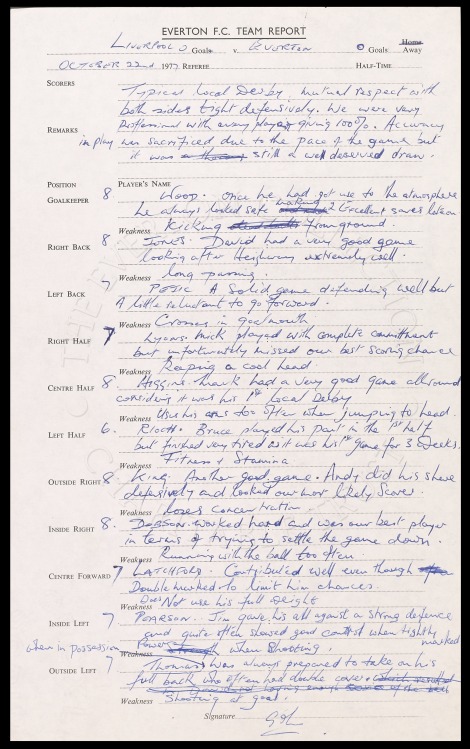 EVERTON F.C. TEAM REPORT
LIVERPOOL 0 Goals v. EVERTON 0 Goals Home Away
OCTOBER 22nd 1977 REFEREE HALF-TIME
SCORERS
Typical Local Derby, mutual respect with
both sides tight defensively. We were very
REMARKS Proffesional with every player giving 100%. Accuracy
in play was sacrificed due to the pace of the game but
it was still a well deserved draw.
POSITION PLAYER'S NAME
GOALKEEPER 8 WOOD. Once he had got use to the atmosphere
he always looked safe making 2 Excellent saves late on
Weakness Kicking from ground.
RIGHT BACK 8 JONES. David had a very good game
looking after Heighway extremely well.
Weakness long passing.
LEFT BACK 7 PEJIC A Solid game defending well but
A little reluctant to go forward.
Weakness Crosses in goalmouth
RIGHT HALF 7 Lyons. Mick played with complete commitment
but unfortunately missed our best scoring chance
Weakness Keeping a cool head.
CENTRE HALF 8 Higgins. Mark had a very good game allround
considering it was his 1st Local Derby
Weakness Uses his arms too often when jumping to head.
LEFT HALF 6. RIOCH. Bruce played his part in the 1st half
but finished very tired as it was his 1st game for 3 weeks.
Weakness Fitness + Stamina
OUTSIDE RIGHT 8 KING. Another good game. Andy did his share
defensively and looked our most likely Scorer.
Weakness loses concentration
INSIDE RIGHT 8. DOBSON. worked hard and was our best player
in terms of trying to settle the game down.
Weakness Running with the ball too often.
CENTRE FORWARD 7 LATCHFORD. Contributed well even though
Double marked to limit him chances.
Weakness Does Not use his full weight
INSIDE LEFT 7 PEARSON. Jim gave his all against a strong defence
and quite often showed good control when tightly marked
when in possession Weakness Power when shooting.
OUTSIDE LEFT 7 Thomas was always prepared to take on his
full back who often had double cover.
Weakness Shooting at goal.
Signature